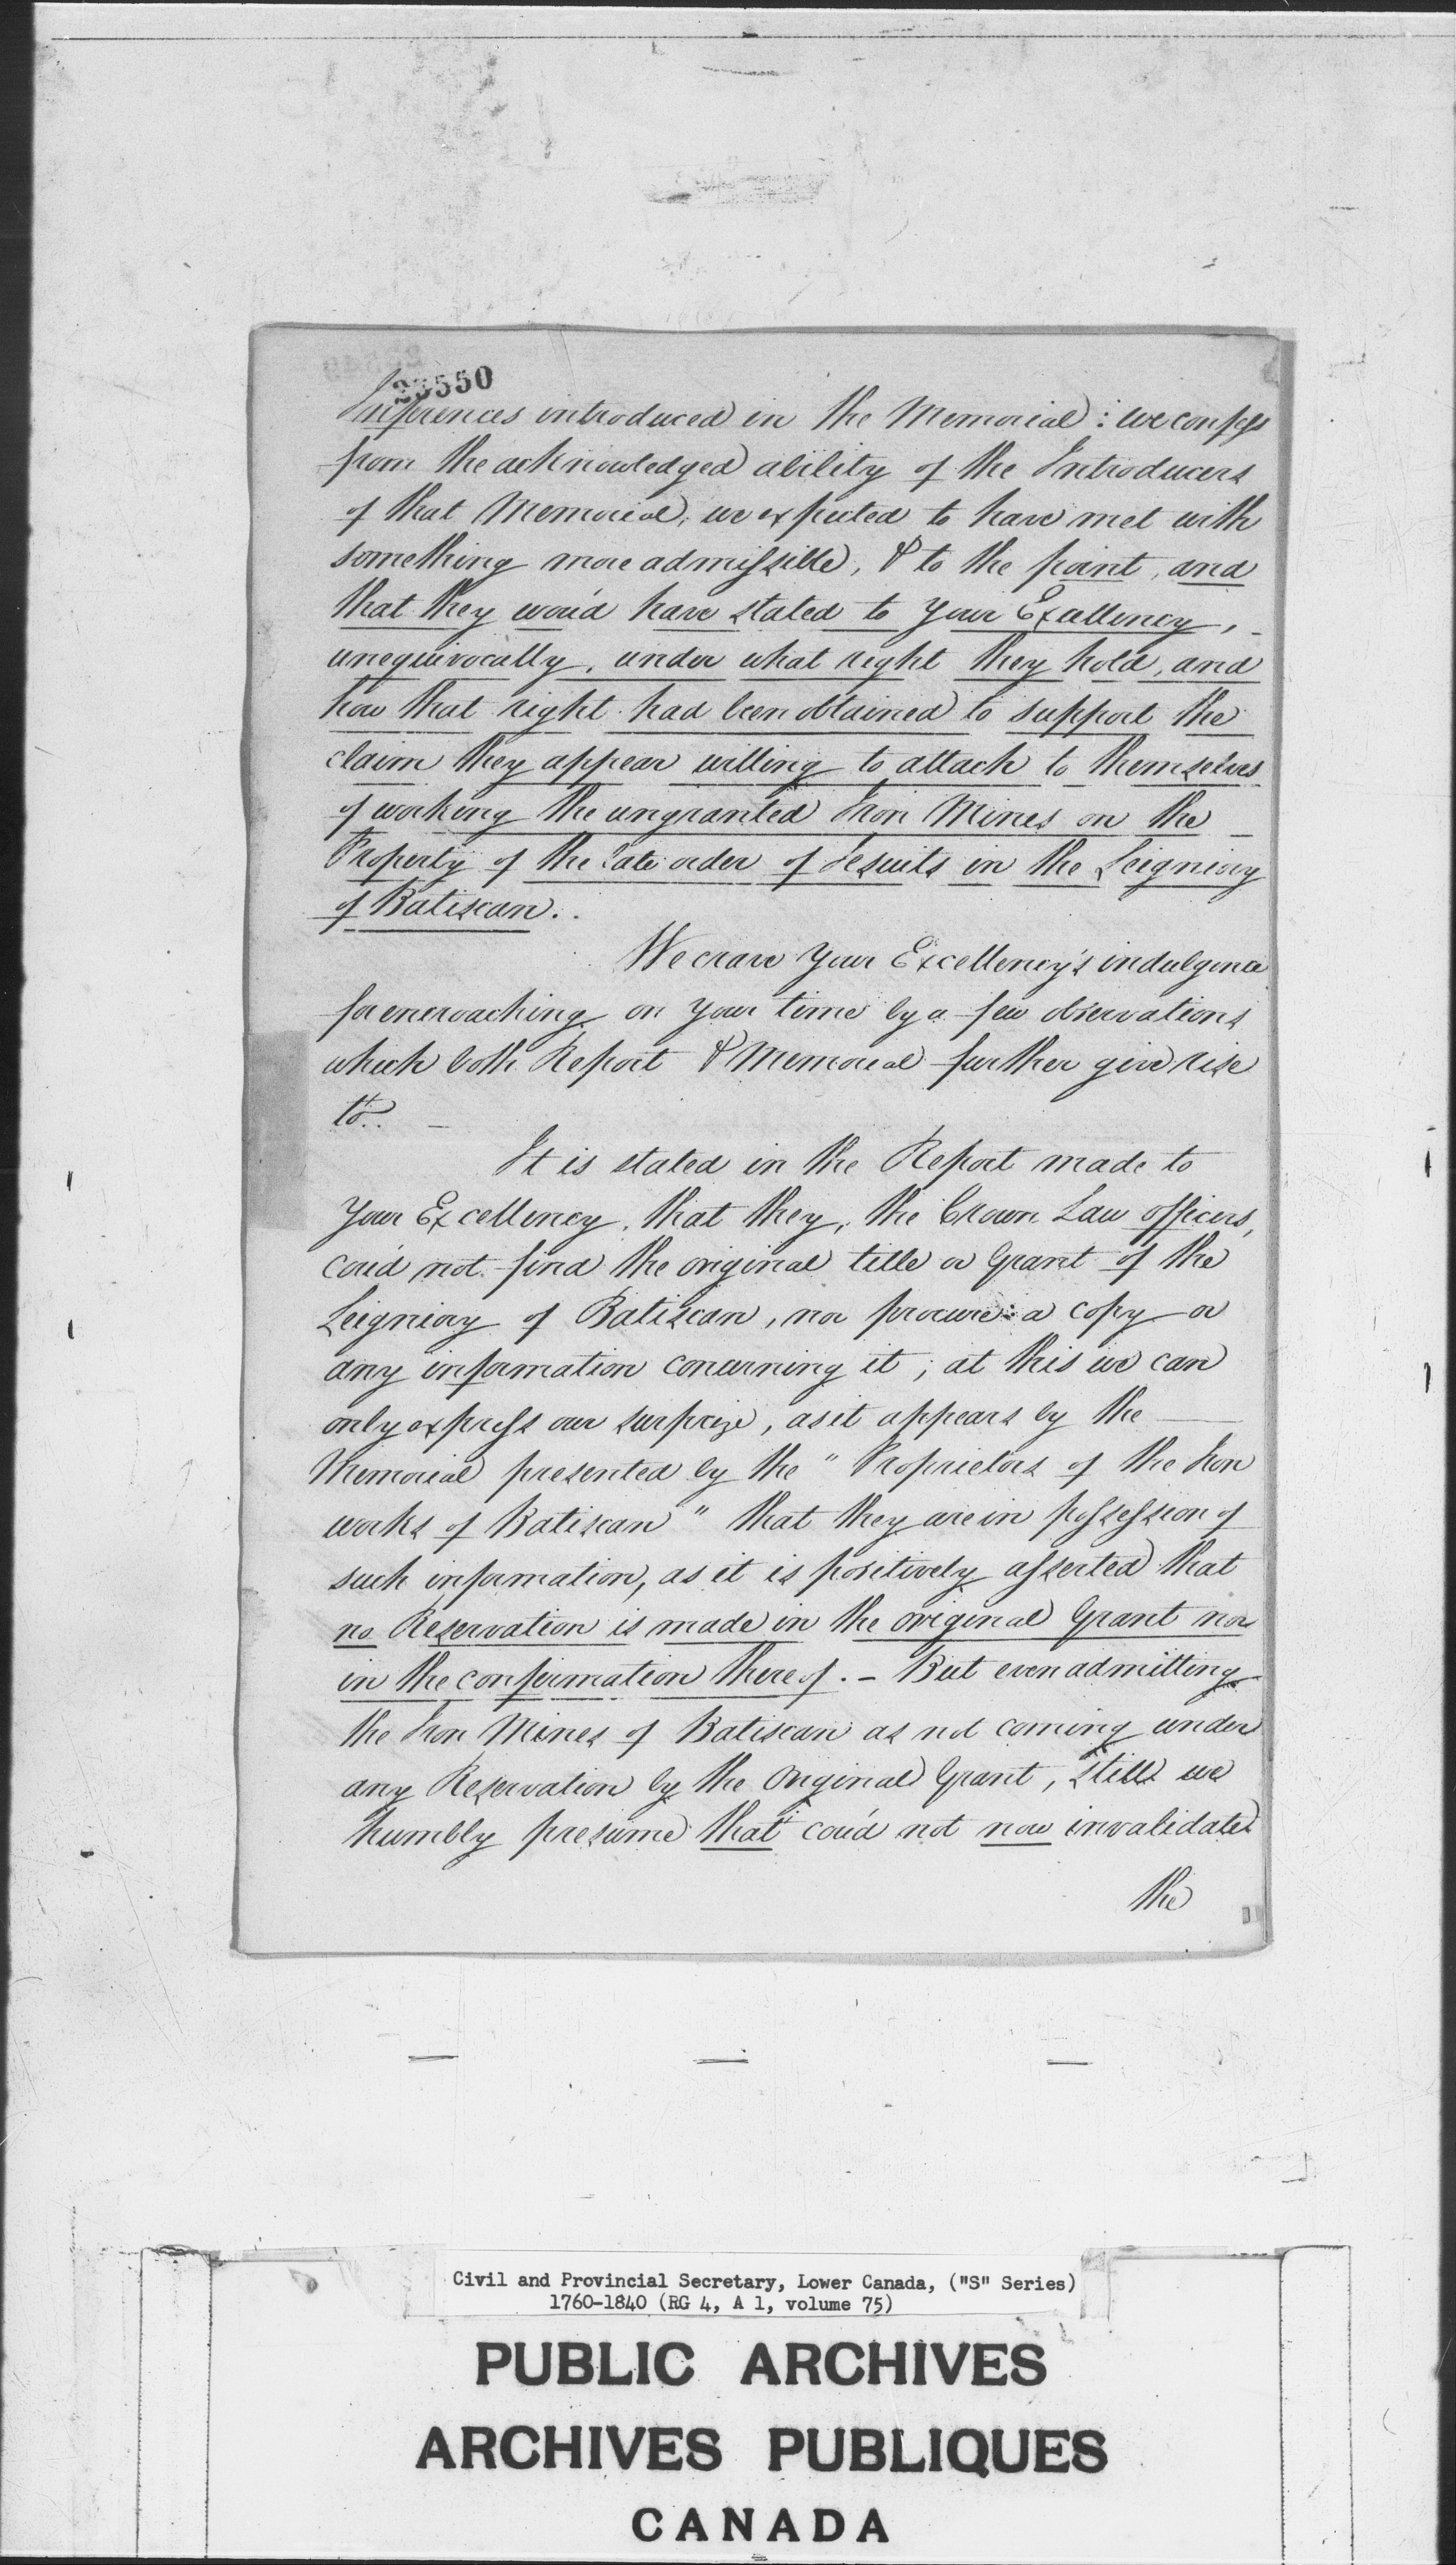 23550
Inferences introduced in the Memorial: we confess
from the acknowledged ability of the Introducers
of that Memorial, we expected to have met with
something more admissible, & to the point, and
that they wou'd have stated to Your Excellency,
unequivocally, under what right they hold, and
how that right had been obtained to support the
claim they appear willing to attach to themselves
of working the ungranted Iron Mines on the
Property of the late order of Jesuits in the Seigniory
of Batiscan.
We crave Your Excellency's indulgence
for encroaching on Your time by a few observations
which both Report & Memorial further give rise
to.
It is stated in the Report made to
Your Excellency, that they, the Crown Law officers,
cou'd not find the original title or Grant of the
Seigniory of Batiscan, nor procure a copy or
any information concerning it; at this we can
only express our surprize, as it appears by the
Memorial presented by the "Proprietors of the Iron
works of Batiscan" that they are in possession of
such information, as it is positively asserted that
no Reservation is made in the original Grant nor
in the confirmation thereof. - But even admitting
the Iron Mines of Batiscan as not coming under
any Reservation by the Original Grant, still we
humbly presume that cou'd not now invalidate
the
Civil and Provincial Secretary, Lower Canada, ("S" Series)
1760-1840 (RG 4, A 1, volume 75)
PUBLIC ARCHIVES
ARCHIVES PUBLIQUES
CANADA